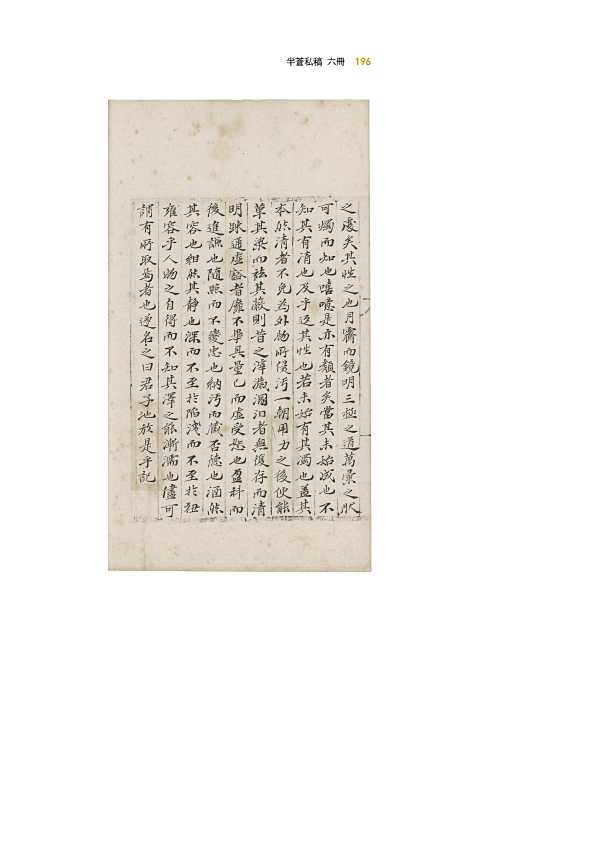 半蒼私稿 六冊 196
之處矣其性之也月霽而鏡明三極之道萬彙之狀
可燭而知也噫噫是亦有類者矣當其未始成也不
知其有清也及乎逆其性也若未始有其濁也盖其
本然清者不免為外物所侵汚一朝用力之後使能
革其染而祛其蔽則昔之滓濊溷汩者無復存而清
明踈通虛豁者靡不畢具量已而虛受㢤也盈科而
後進謙也隨照而不變忠也納汚而藏否德也涵然
其容也紺然其静也深而不至於陷淺而不至於
雍容乎人物之自得而不知其澤之能漸濡也儘可
謂有所取焉者也遂名之曰君子地放是乎記